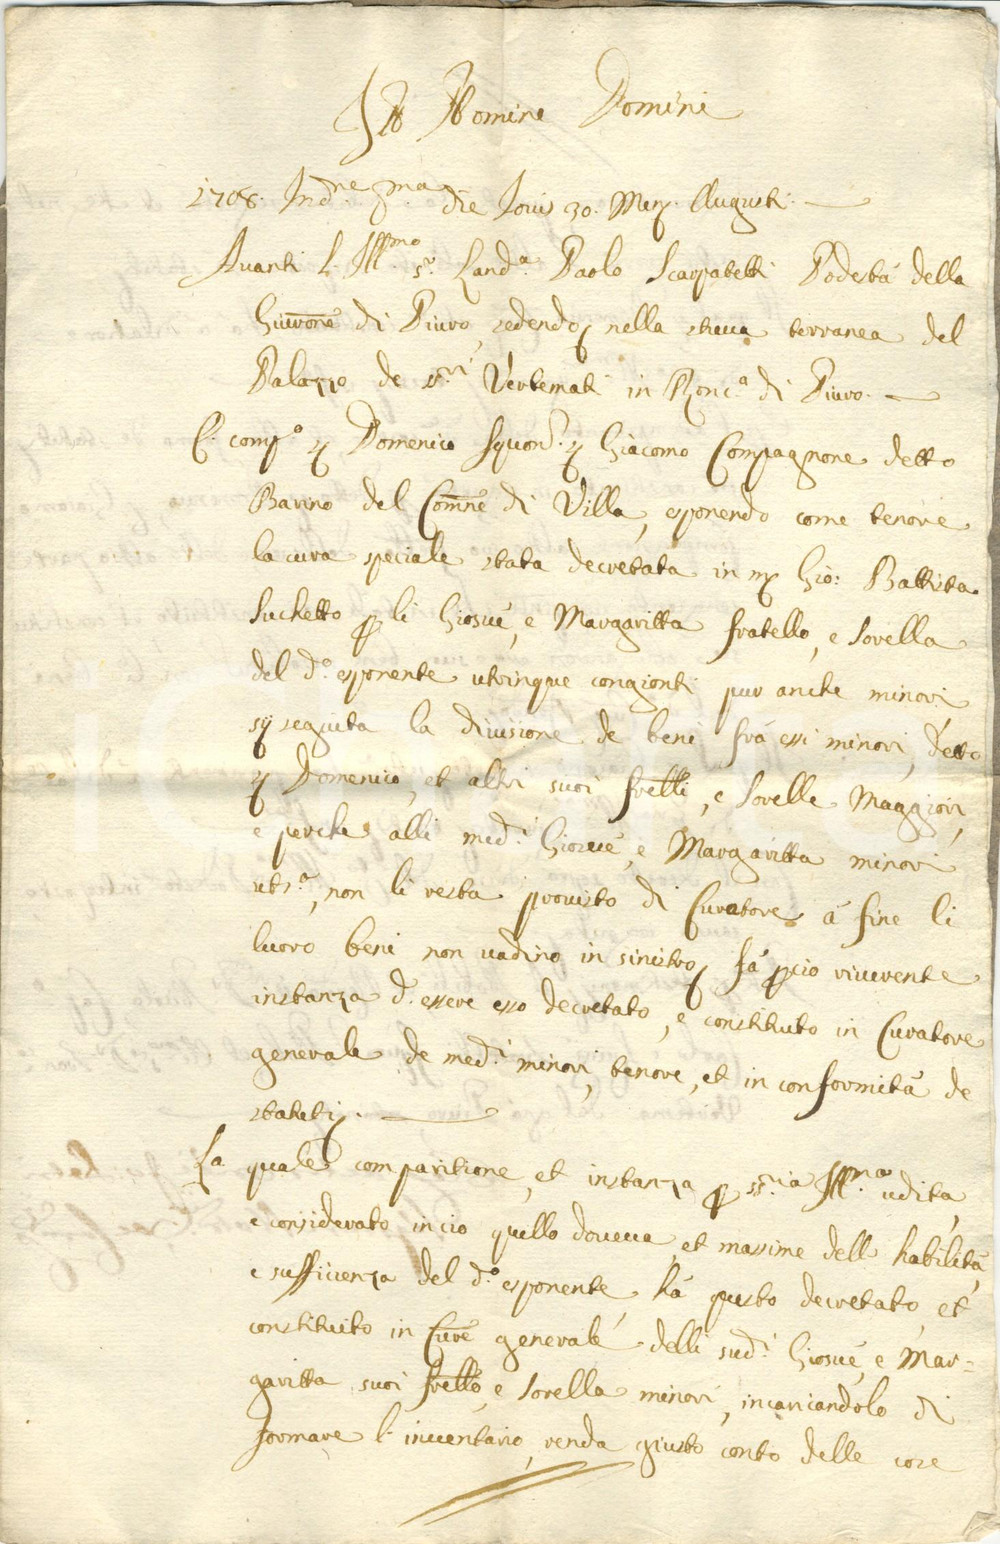 In Nomine Domini
1708. Ind.ne p.ma die Jovis 30. Mens. Augusti.
Avanti l'Ill.mo s.r Land.a Paolo Scarpatetti Podestà della
Giurone di Piuro, sedendo nella stuva terranea del
Palazzo de ss.ri Vertemati in Ronc.a di Piuro.
È comp.o Domenico Giacomo Compagnone detto
Barino del Comne di Villa, esponendo come tenore
la cura speciale stata decretata in Gio: Battista
Suchetto p li Giosuè, e Margaritta fratello, e sorella
del d.o esponente utrinque congionti pur anche minori
sij seguita la divisione de beni frà essi minori, detto
Domenico, et altri suoi frelli, e sorelle Maggiori,
e perche alli med.i Giosuè, e Margaritta minori
uts.a, non li resta provisto di Curatore à fine li
luoro beni non vadino in sinistro, fà pciò riverente
instanza d'essere esso decretato, e constituto in Curatore
generale de med.i minori, tenore, et in conformità de
statuti.
La quale comparitione, et instanza p ss.ria Ill.ma udita,
e considerato in ciò quello doveva et massime dell habilità,
e sufficienza del d.o esponente, hà questo decretato, et
constituito in Cure generale delli sud.i Giosuè, e Mar-
garitta suoi frello, e sorella minori, incaricandolo di
formare l'inventario, renda giusto conto delle cose